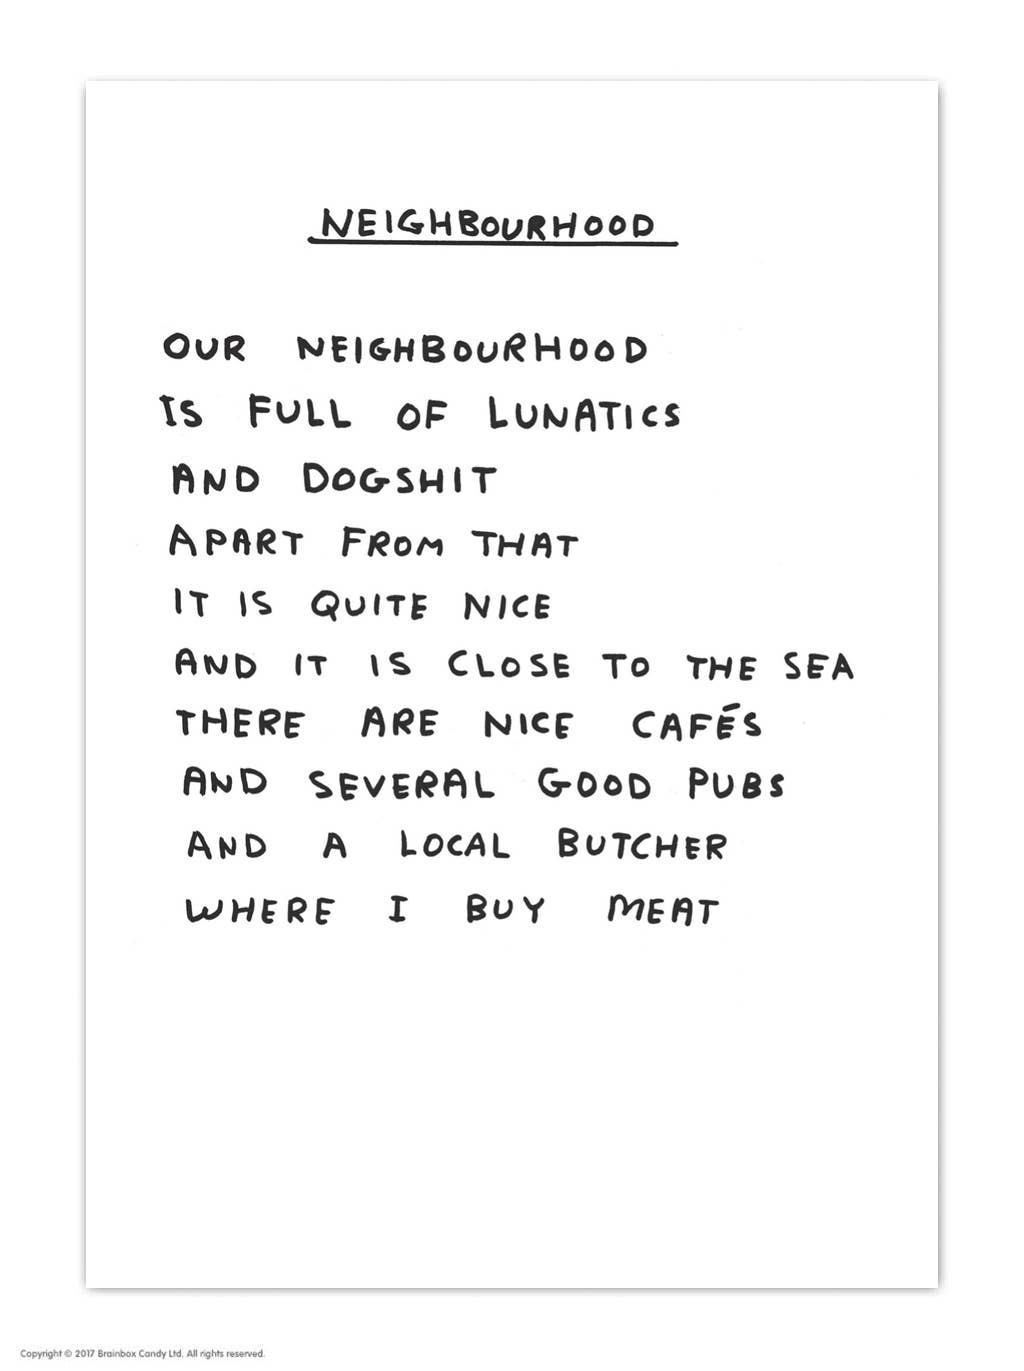 NEIGHBOURHOOD
OUR NEIGHBOURHOOD
IS FULL OF LUNATICS
AND DOGSHIT
APART FROM THAT
IT IS QUITE NICE
AND IT IS CLOSE TO THE SEA
THERE ARE NICE CAFÉS
AND SEVERAL GOOD PUBS
AND A LOCAL BUTCHER
WHERE I BUY MEAT
Copyright © 2017 Brainbox Candy Ltd. All rights reserved.